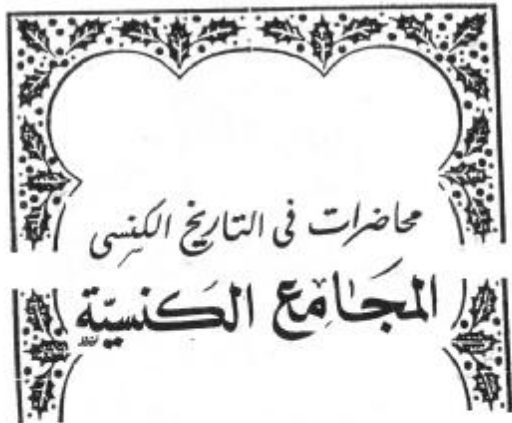 محاضرات فى التاريخ الكنسى
المجَامع الكنسيّة